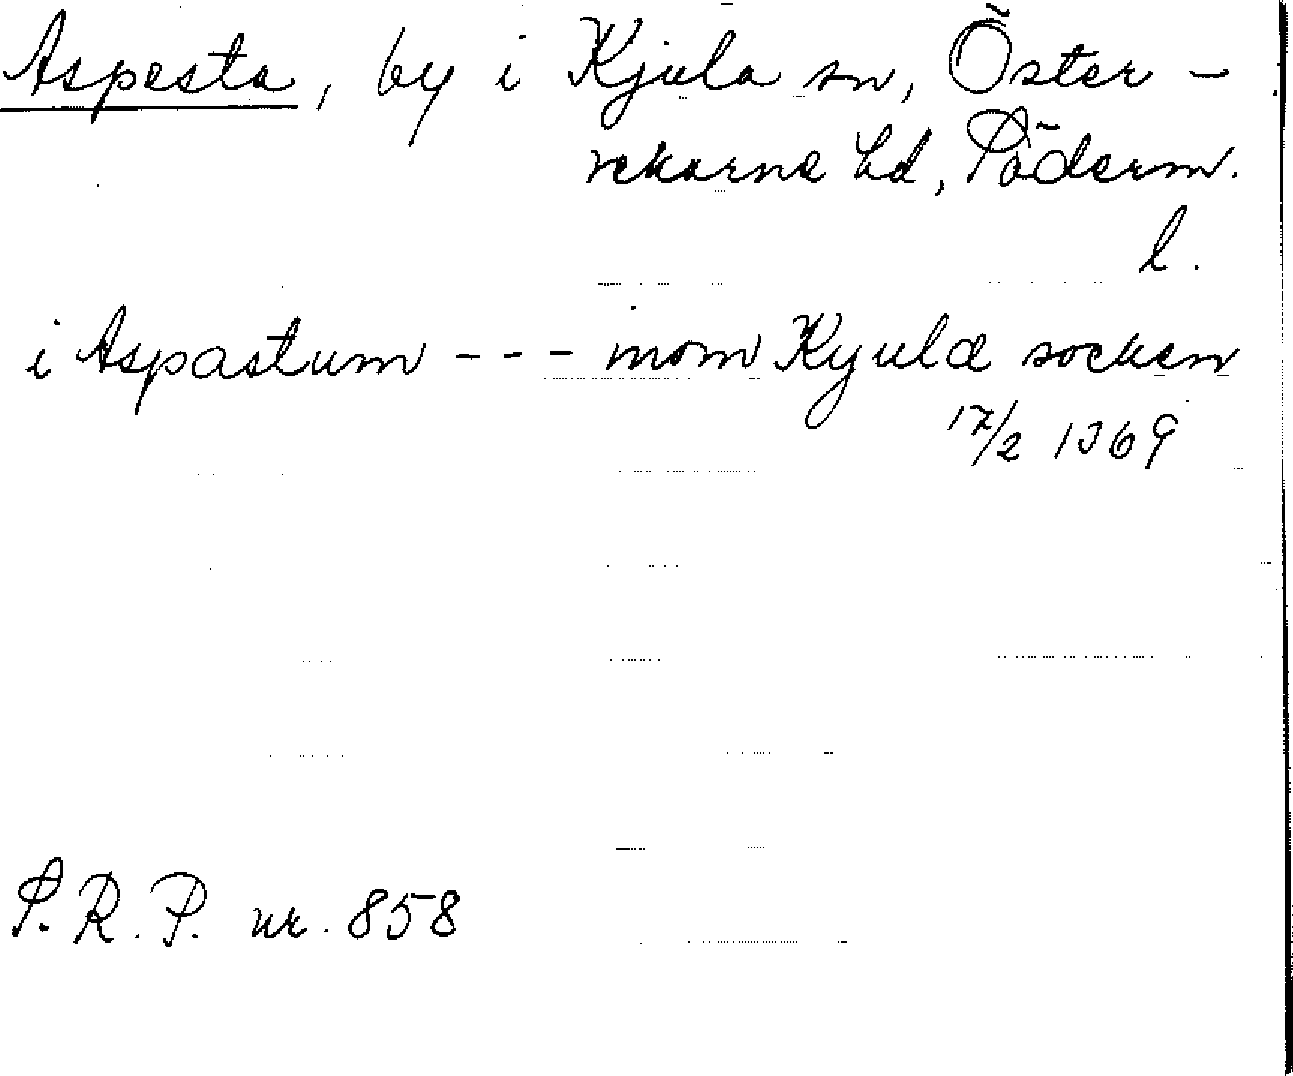 Aspesta, by i Kjula sn, Öster-
rekarne hd, Söderm.
l.
i Aspastum - - - innom Kyula socken
17/2 1369
S.R.P. nr. 858